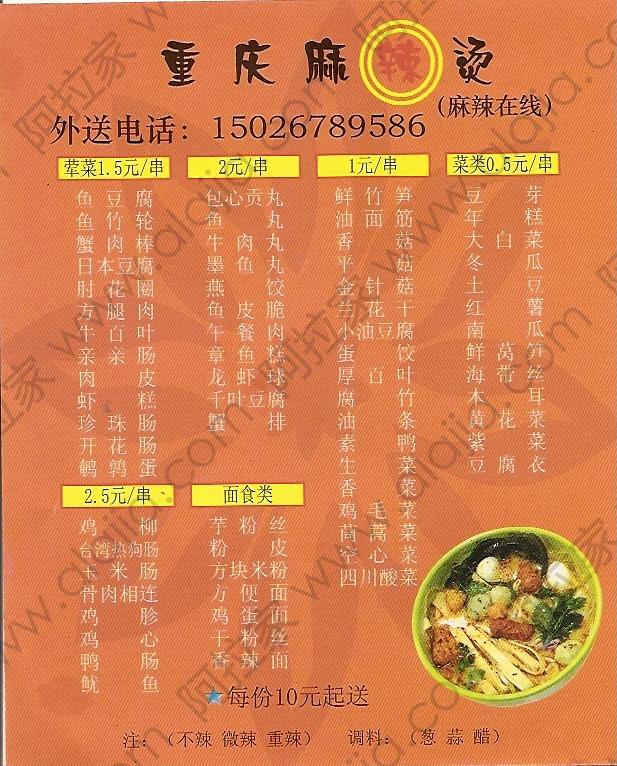 重庆麻辣烫
(麻辣在线)
外送电话：15026789586
荤菜1.5元/串
鱼豆腐
鱼竹轮
蟹肉棒
日本豆腐
肘花圈
方腿肉
牛百叶
亲亲肠
肉皮
虾糕
珍珠肠
开花肠
鹌鹑蛋
2元/串
包心贡丸
鱼丸
牛肉丸
墨鱼丸
燕饺
鱼皮脆
午餐肉
章鱼糕
龙虾球
千叶豆腐
蟹排
1元/串
鲜竹笋
油面筋
香菇
平菇
金针菇
兰花干
小油豆腐
蛋饺
厚百叶
腐竹
油条
素鸭
生菜
香菜
鸡毛菜
茼蒿菜
空心菜
四川酸菜
菜类0.5元/串
豆芽
年糕
大白菜
冬瓜
土豆
红薯
南瓜
鲜莴笋
海带丝
木耳
黄花菜
紫菜
豆腐衣
2.5元/串
鸡柳
台湾热狗肠
玉米肠
骨肉相连
鸡胗
鸡心
鸭肠
鱿鱼
面食类
芋粉丝
粉皮
方块米粉
方便面
鸡蛋面
干粉丝
香辣面
★每份10元起送
注：（不辣 微辣 重辣） 调料：（葱 蒜 醋）
阿拉家 www.alajia.com